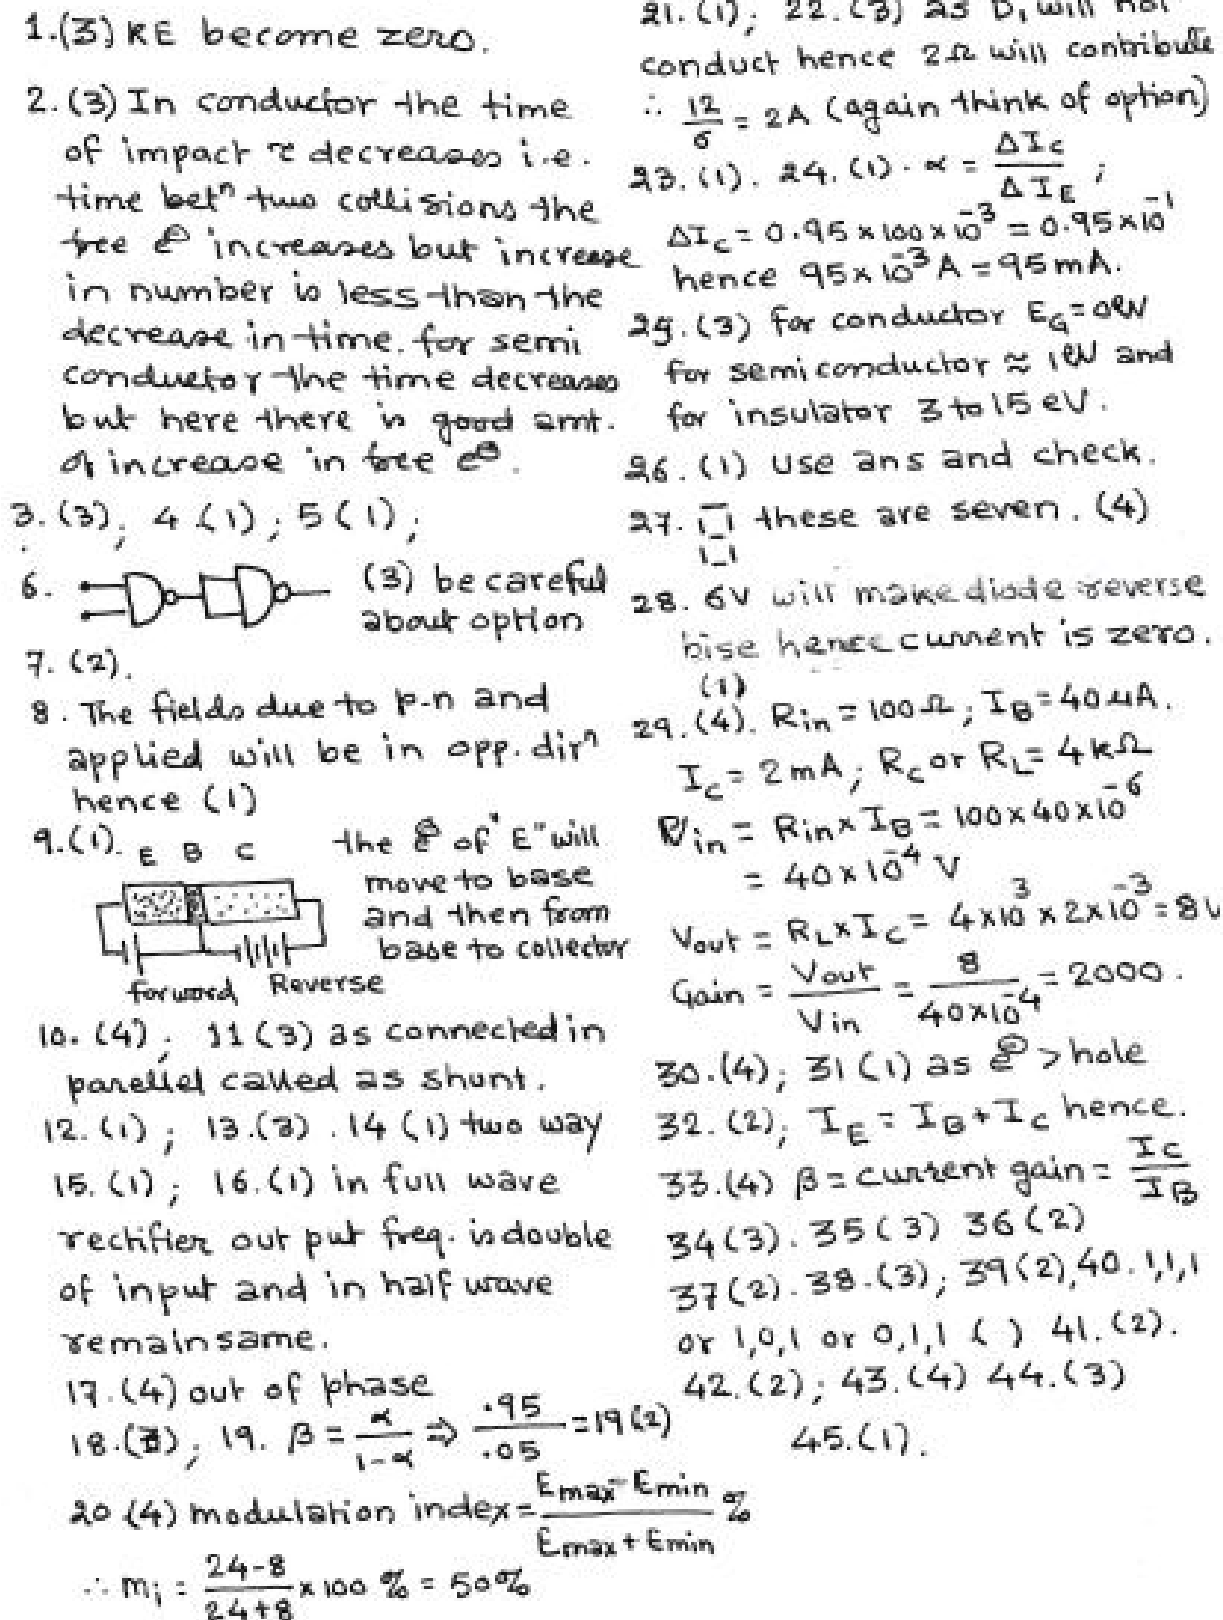 1.(3) KE become zero.
2.(3) In conductor the time
of impact τ decreases i.e.
time betⁿ two collisions the
free e⊖ increases but increase
in number is less than the
decrease in time. for semi
conductor the time decreases
but here there is good amt.
of increase in free e⊖.
3.(3); 4(1); 5(1);
6. (3) be careful
about option
7.(2).
8. The fields due to p-n and
applied will be in opp. dirⁿ
hence (1)
9.(1). E B C the e⊖ of "E" will
move to base
and then from
base to collector
forword Reverse
10. (4); 11(3) as connected in
parellel called as shunt.
12.(1); 13.(3). 14(1) two way
15.(1); 16.(1) in full wave
rectifier out put freq. is double
of input and in half wave
remain same.
17.(4) out of phase
18.(3); 19. β = α/(1-α) ⇒ .95/.05 = 19(2)
20.(4) modulation index = (Emax - Emin)/(Emax + Emin) %
∴ mi = (24-8)/(24+8) × 100 % = 50%
21.(1); 22.(3) as D₁ will not
conduct hence 2Ω will contribute
∴ 12/6 = 2A (again think of option)
23.(1). 24.(1). α = ΔIc/ΔIE;
ΔIc = 0.95×100×10⁻³ = 0.95×10⁻¹
hence 95×10⁻³A = 95mA.
25.(3) for conductor EG = 0eV
for semiconductor ≈ 1eV and
for insulator 3 to 15 eV.
26.(1) Use ans and check.
27. these are seven. (4)
28. 6V will make diode reverse
bise hence current is zero.
(1)
29.(4). Rin = 100Ω; IB = 40μA.
Ic = 2mA; Rc or RL = 4kΩ
Vin = Rin×IB = 100×40×10⁻⁶
= 40×10⁻⁴ V
Vout = RL×Ic = 4×10³×2×10⁻³ = 8V
Gain = Vout/Vin = 8/(40×10⁻⁴) = 2000.
30.(4); 31(1) as e⊖ > hole
32.(2); IE = IB + Ic hence.
33.(4) β = current gain = Ic/IB
34(3). 35(3) 36(2)
37(2). 38.(3); 39(2), 40. 1,1,1
or 1,0,1 or 0,1,1 ( ) 41.(2).
42.(2); 43.(4) 44.(3)
45.(1).